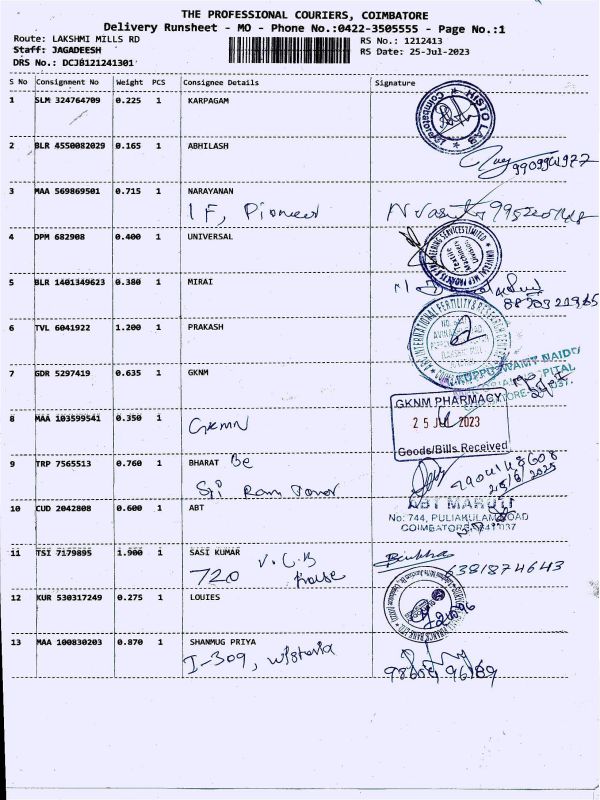 THE PROFESSIONAL COURIERS, COIMBATORE
Delivery Runsheet - MO - Phone No.:0422-3505555 - Page No.:1
Route: LAKSHMI MILLS RD
Staff: JAGADEESH
DRS No.: DCJB121241301
RS No.: 1212413
RS Date: 25-Jul-2023
S No Consignment No Weight PCS Consignee Details Signature
1 SLM 324764709 0.225 1 KARPAGAM
HISTO LAB
Coimbatore
2 BLR 4550082029 0.165 1 ABHILASH
9909941977
3 MAA 569869501 0.715 1 NARAYANAN
1 F, Pioneer
4 DPM 682908 0.400 1 UNIVERSAL
Textile
Machinery
Division
5 BLR 1401349623 0.380 1 MIRAI
6 TVL 6041922 1.200 1 PRAKASH
7 GDR 5297419 0.635 1 GKNM
KUPPUSWAMY NAIDU
8 MAA 103599541 0.350 1
GKMN
GKNM PHARMACY
25 JUL 2023
Goods/Bills Received
9 TRP 7565513 0.760 1 BHARAT Be
Sri Ram
10 CUD 2042808 0.600 1 ABT
ABT MARUTI
No: 744, PULIAKULAM ROAD
11 TSI 7179895 1.900 1 SASI KUMAR
V.C.B
720
6381874643
12 KUR 530317249 0.275 1 LOUIES
13 MAA 100830203 0.870 1 SHANMUG PRIYA
I-309, wistoria